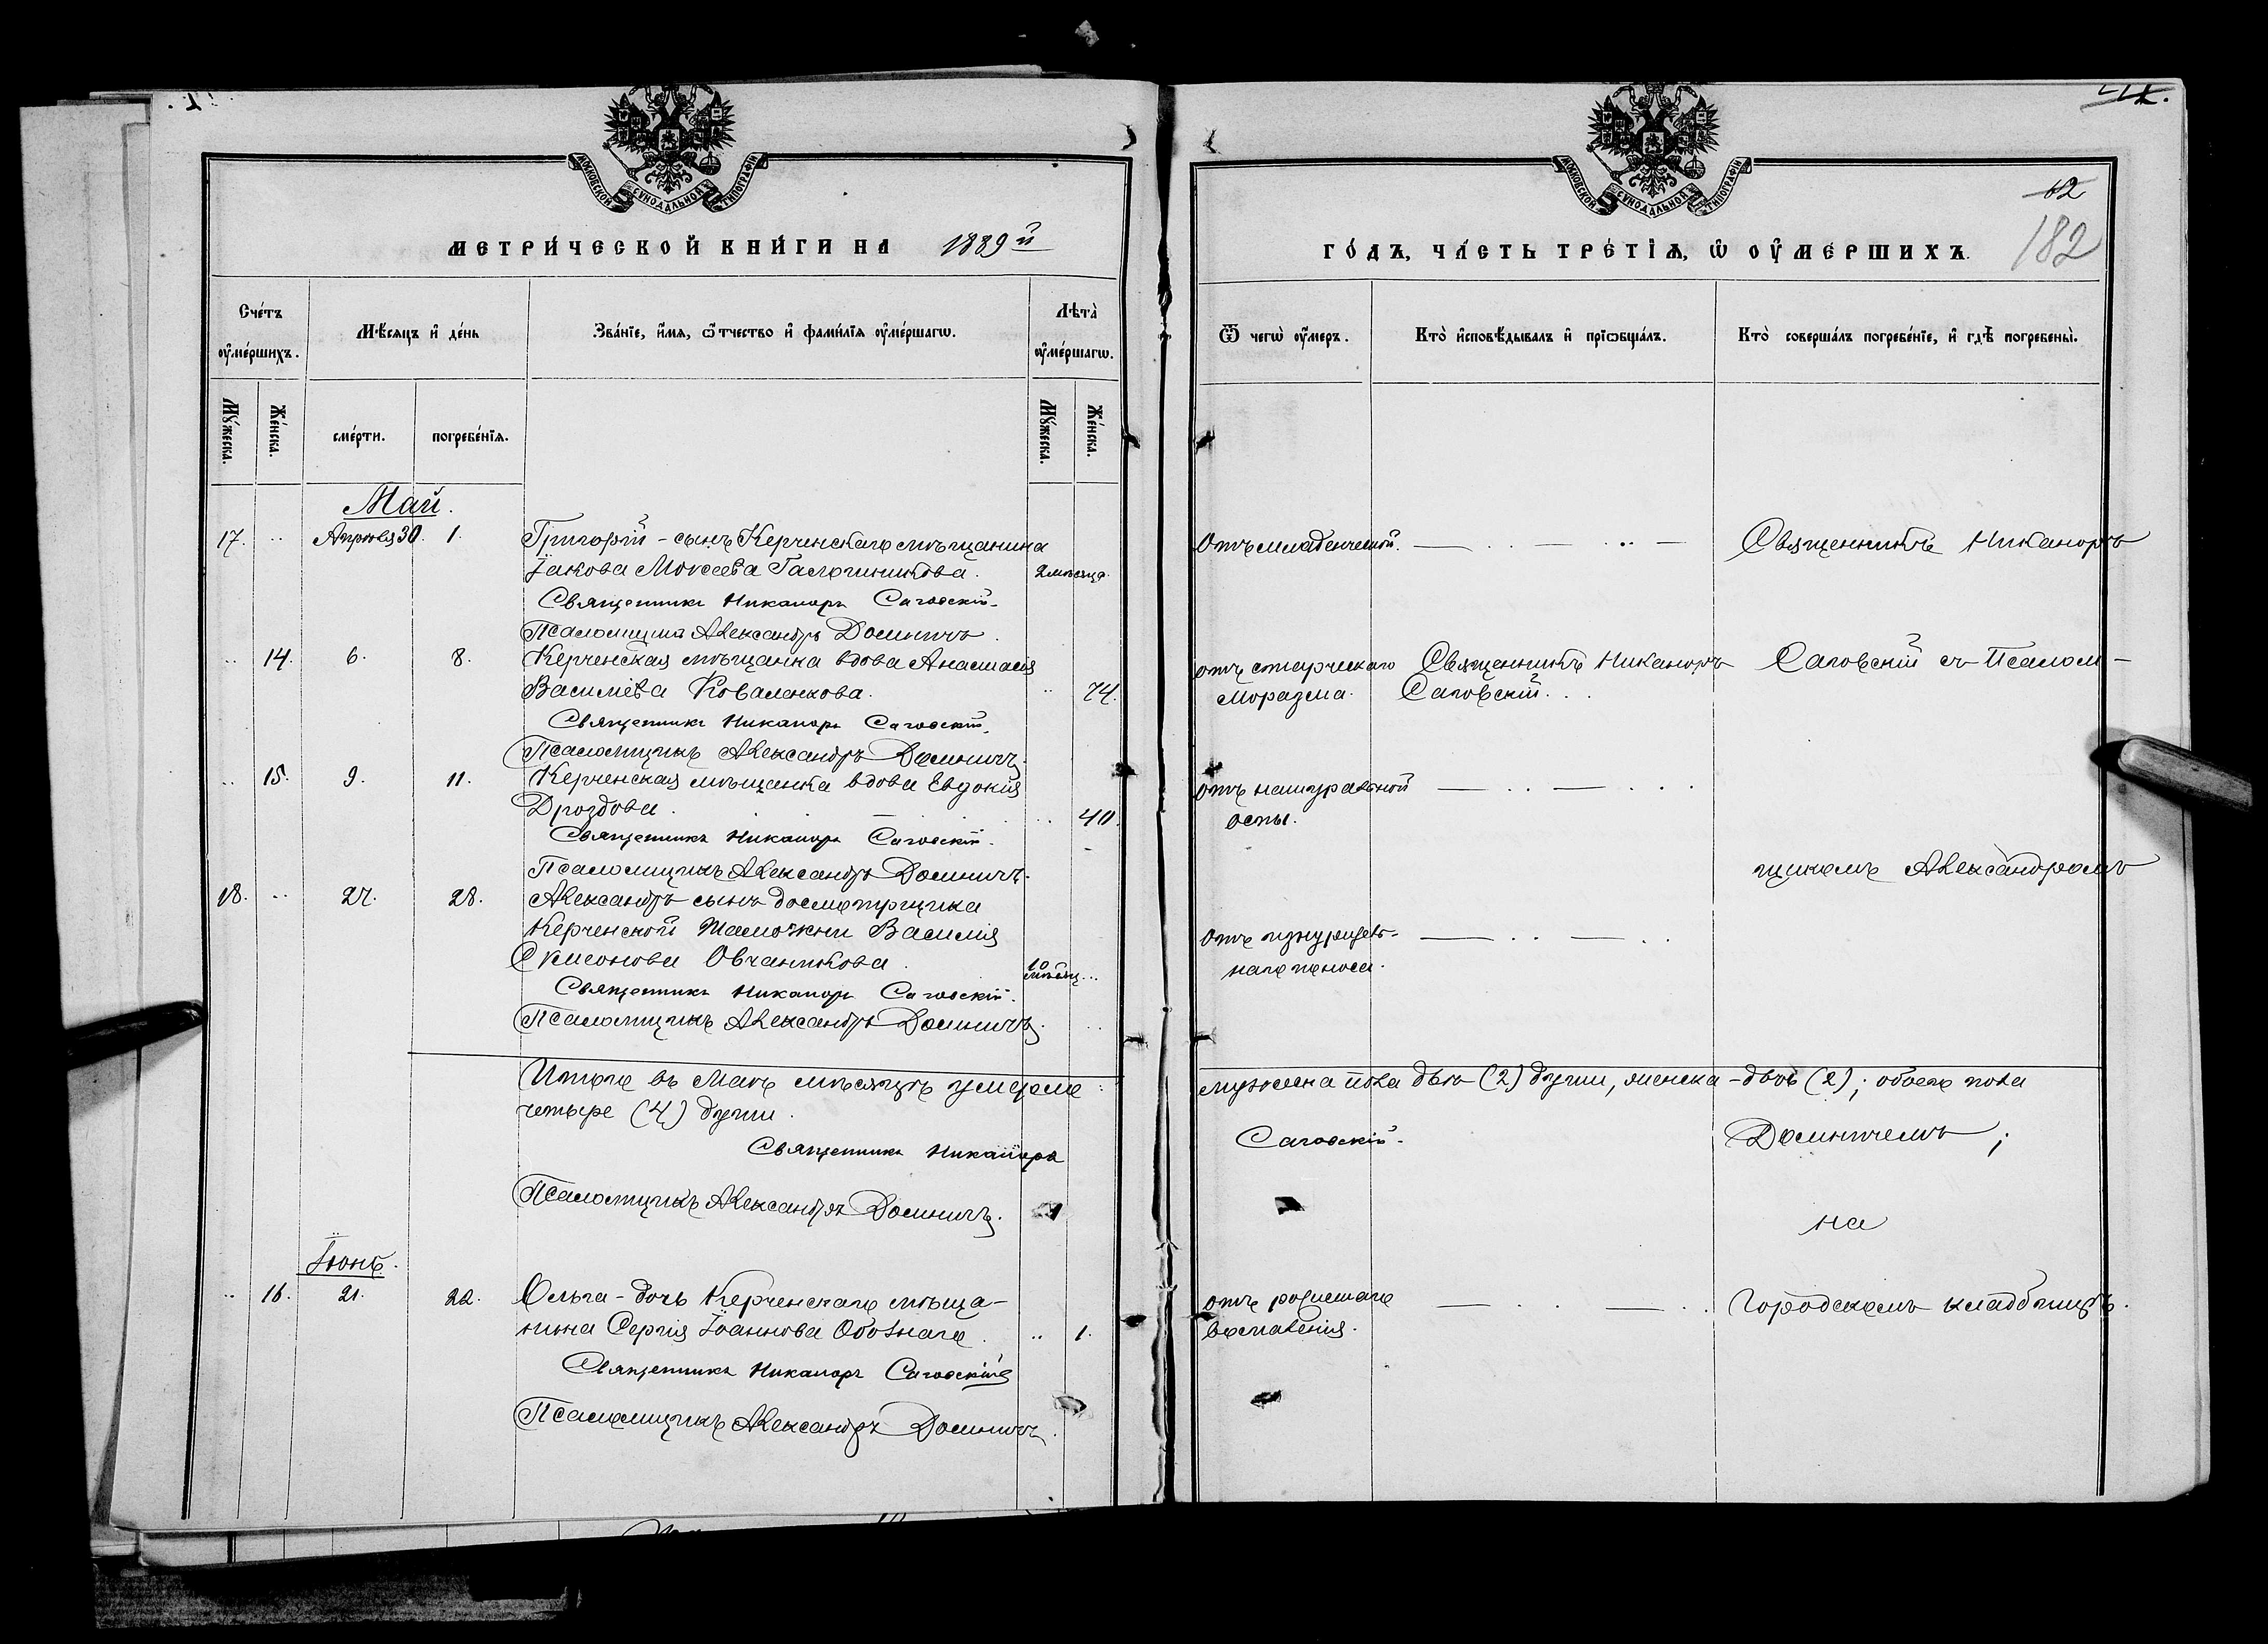 МОСКОВСКОЙ СУНОДАЛЬНОЙ ТИПОГРАФІИ
МЕТРИ́ЧЕСКОЙ КНИ́ГИ НА 1889й
Сче́тъ ᲂу҆ме́ршихъ.
Мѣ́сяцъ и҆ де́нь
Зва́нїе, и҆́мя, ѻ҆́тчество и҆ фами́лїя ᲂу҆ме́ршагѡ.
Лѣта̀ ᲂу҆ме́ршагѡ.
Мꙋ́жеска.
Же́нска.
сме́рти.
погребе́нїя.
Мꙋ́жеска.
Же́нска.
Май.
17. Апрѣля 30. 1. Григорій - сынъ Керченскаго мѣщанина
Іакова Моѵсеева 2 мѣсяца.
Священникъ Никаноръ Саговскій.
Псаломщикъ Александръ Доминичъ.
14. 6. 8. Керченская мѣщанка вдова Анастасія
Василіева Коваленкова. 74.
Священникъ Никаноръ Саговскій.
Псаломщикъ Александръ Доминичъ.
15. 9. 11. Керченская мѣщанка вдова Евдокія
Дроздова. 40.
Священникъ Никаноръ Саговскій.
Псаломщикъ Александръ Доминичъ.
18. 27. 28. Александръ сынъ досмотрщика
Керченской Таможни Василія
Овчаникова. 10 мѣсяц.
Священникъ Никаноръ Саговскій.
Псаломщикъ Александръ Доминичъ.
Итого въ Маѣ мѣсяцѣ умерло:
четыре (4) души.
Священникъ Никаноръ
Псаломщикъ Александръ Доминичъ.
Іюнь.
16. 21. 22. Ольга - дочь Керченскаго мѣща-
нина Сергія Іоаннова Обознаго. 1.
Священникъ Никаноръ Саговскій
Псаломщикъ Александръ Доминичъ.
МОСКОВСКОЙ СУНОДАЛЬНОЙ ТИПОГРАФІИ
62
182
ГО́ДЪ, ЧА́СТЬ ТРЕ́ТЇЯ, Ѡ ОУ҆МЕРШИХЪ.
Ѿ чегѡ̀ ᲂу҆́меръ.
Кто̀ и҆сповѣ́дывалъ и҆ прїѡбща́лъ.
Кто̀ соверша́лъ погребе́нїе, и҆ гдѣ̀ погребены̀.
Отъ младенческой. Священникъ Никаноръ
отъ старческаго Священникъ Никаноръ Саговскій съ Псалом-
моразма. Саговскій.
отъ натуральной
оспы.
щикомъ Александромъ
отъ изнуритель-
наго поноса.
мужеска пола двѣ (2) души, женска - двѣ (2); обоего пола
Саговскій. Доминичемъ;
на
отъ Городскомъ кладбищѣ.
воспаленія.